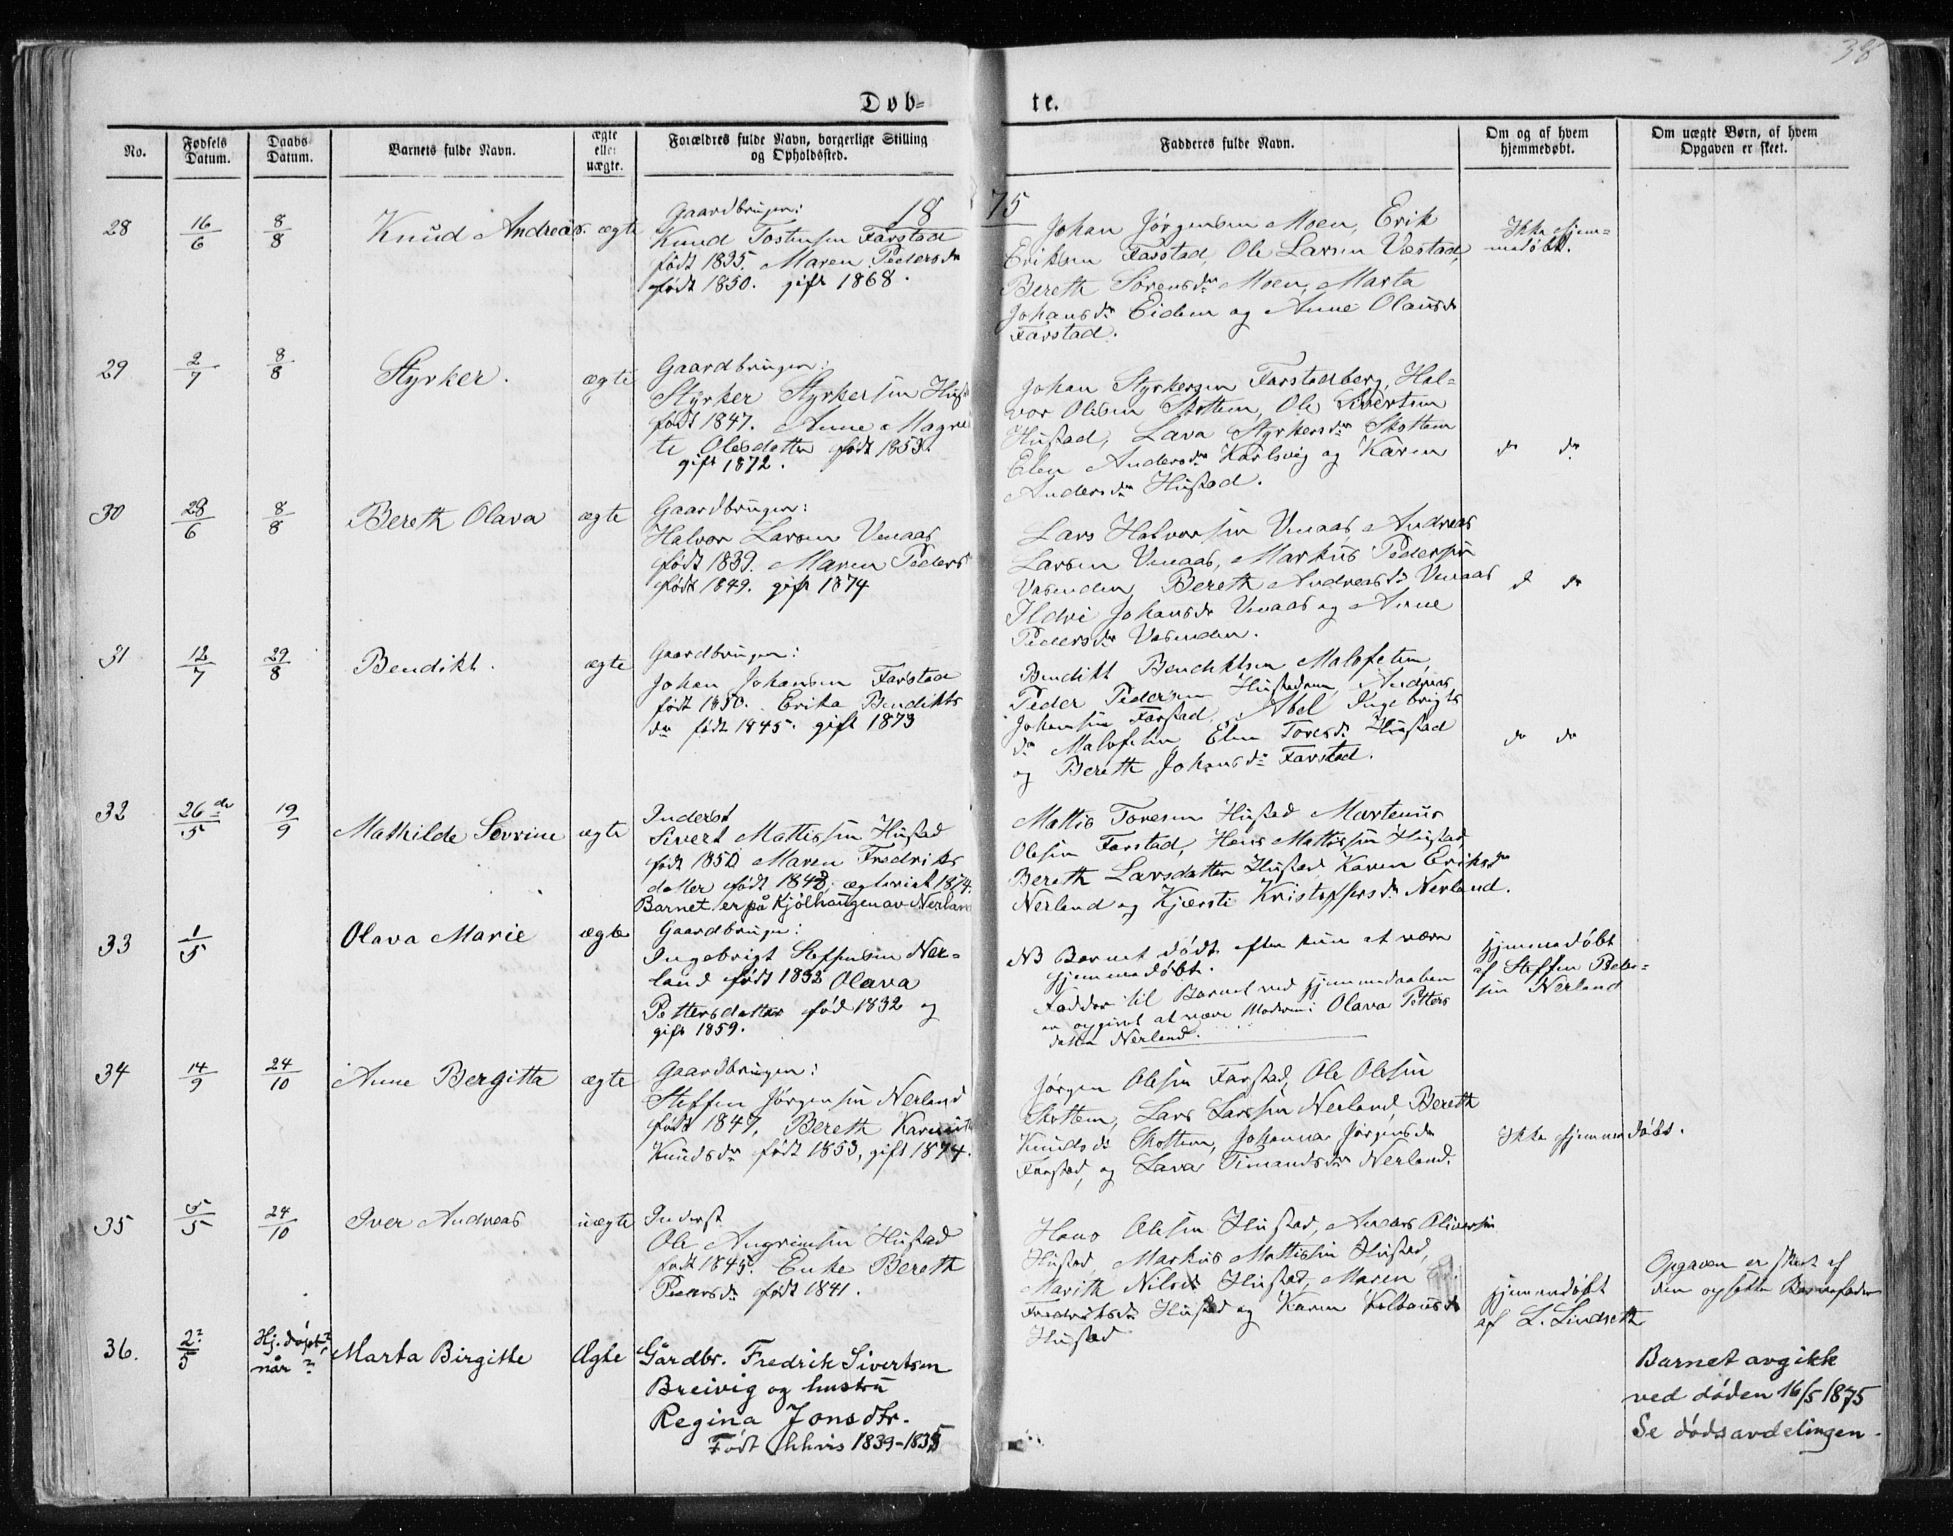 38
Døb-
te.
No.
Fødsels Datum.
Daabs Datum.
Barnets fulde Navn.
ægte eller uægte.
Forældres fulde Navn, borgerlige Stilling og Opholdssted.
Fadderes fulde Navn.
Om og af hvem hjemmedøbt.
Om uægte Børn, af hvem Opgaven er skeet.
18 75
28
16/6
8/8
Knud Andreas.
ægte
Gaardbruger:
Knud Tostensen Farstad
født 1835. Maren Pedersdr
født 1850. gift 1868.
Johan Jørgensen Moen, Erik
Eriksen Farstad, Ole Larsen Vestad,
Bereth Sørensdr Moen, Marta
Johansdr Eidem og Anne Olausdr
Farstad.
Ikke hjem=
medøbt.
29
2/7
8/8
Styrker.
ægte
Gaardbruger:
Styrker Styrkersen Hust
født 1847. Anne Magre
te Olesdatter født 1853.
gift 1872.
Johan Styrkersen Farstadberg, Hal=
vor Olesen Skottem, Ole Sivertsen
Hustad, Lava Styrkersdr Skottem
Elen Andersdr Karlsvig og Karen
Andersdr Hustad.
do do
30
28/6
8/8
Bereth Olava
ægte
Gaardbruger:
Halvor Larsen Venaas
født 1839. Maren Peders
født 1849. gift 1874
Lars Halvorsen Venaas, Andreas
Larsen Venaas, Markus Pedersen
Vasenden, Bereth Andreasdr Venaas
Ildri Johansdr Venaas og Anne
Pedersdr Vasenden.
do do
31
12/7
29/8
Bendikt.
ægte
Gaardbruger:
Johan Johansen Farstad
født 1850. Erika Bendikts
dr født 1845. gift 1873
Bendikt Bendiktsen Malefeten,
Peder Pedersen Hustadnes, Andreas
Johansen Farstad, Abel Ingebrigts
dr Malefeten, Elen Toresdr Hustad
og Bereth Johansdr Farstad.
do do
32
26de/5
19/9
Mathilde Sevrine
ægte
Inderst
Sivert Mattissen Hustad
født 1850 Maren Fredriks
datter født 1848, ægteviet 1874.
Barnet er på Kjølhaugen av Nerland
Mattis Toresen Hustad Martenus
Olesen Farstad, Hans Mattissen Hustad,
Bereth Larsdatter Hustad, Karen Eriksdr
Nerland og Kjersti Kristoffersdr Nerland.
33
1/5
Olava Marie
ægte
Gaardbruger:
Ingebrigt Steffensen Ner=
land født 1832 Olava
Pettersdatter fød 1832 og
gift 1859.
NB Barnet død efter kun at være
hjemmedøbt.
Fadder til Barnet ved hjemmedaaben
er opgivet at være Moderen: Olava Petters
datter Nerland.
hjemmedøbt
af Steffen Peder=
sen Nerland
34
14/9
24/10
Anne Bergitta
ægte
Gaardbruger:
Steffen Jørgensen Nerland
født 1847, Bereth
Knudsdr født 1853, gift 1874.
Jørgen Olesen Farstad, Ole Olesen
Skottem, Lars Larsen Nerland, Bereth
Knudsdr Skottem, Johanna Jørgensdr
Farstad, og Lava Timandsdr Nerland.
Ikke hjemmedøbt.
35
5/5
24/10
Iver Andreas
uægte
Inderst
Ole Angrimsen Hustad
født 1845. Enke Bereth
Pedersdr født 1841.
Hans Olesen Hustad, Anders Oliversen
Hustad, Markus Mattissen Hustad,
Marith Nilsdr Hustad, Maren
Fredriksdr Hustad og Karen Kolbensdr
Hustad
hjemmedøbt
af L. Lindseth
Opgaven er skeet af
den opgivne Barnefader
36.
2?/5
Hj. døpt,
når?
Marta Birgitte
Ægte
Gårdbr. Fredrik Sivertsen
Breivig og hustru
Regina Jonsdtr.
Født hhvis 1839-1835
Barnet avgikk
ved døden 16/5 1875
Se dødsavdelingen.